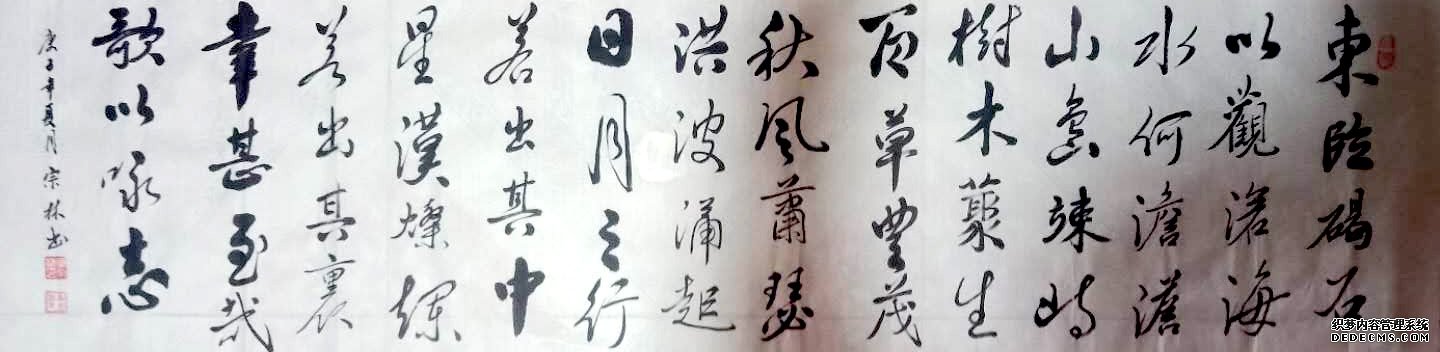 東臨碣石
以觀滄海
水何澹澹
山島竦峙
樹木藂生
百草豐茂
秋風蕭瑟
洪波涌起
日月之行
若出其中
星漢燦爛
若出其裏
幸甚至哉
歌以咏志
庚子年夏月宗林书
织梦内容管理系统
DEDECMS.COM